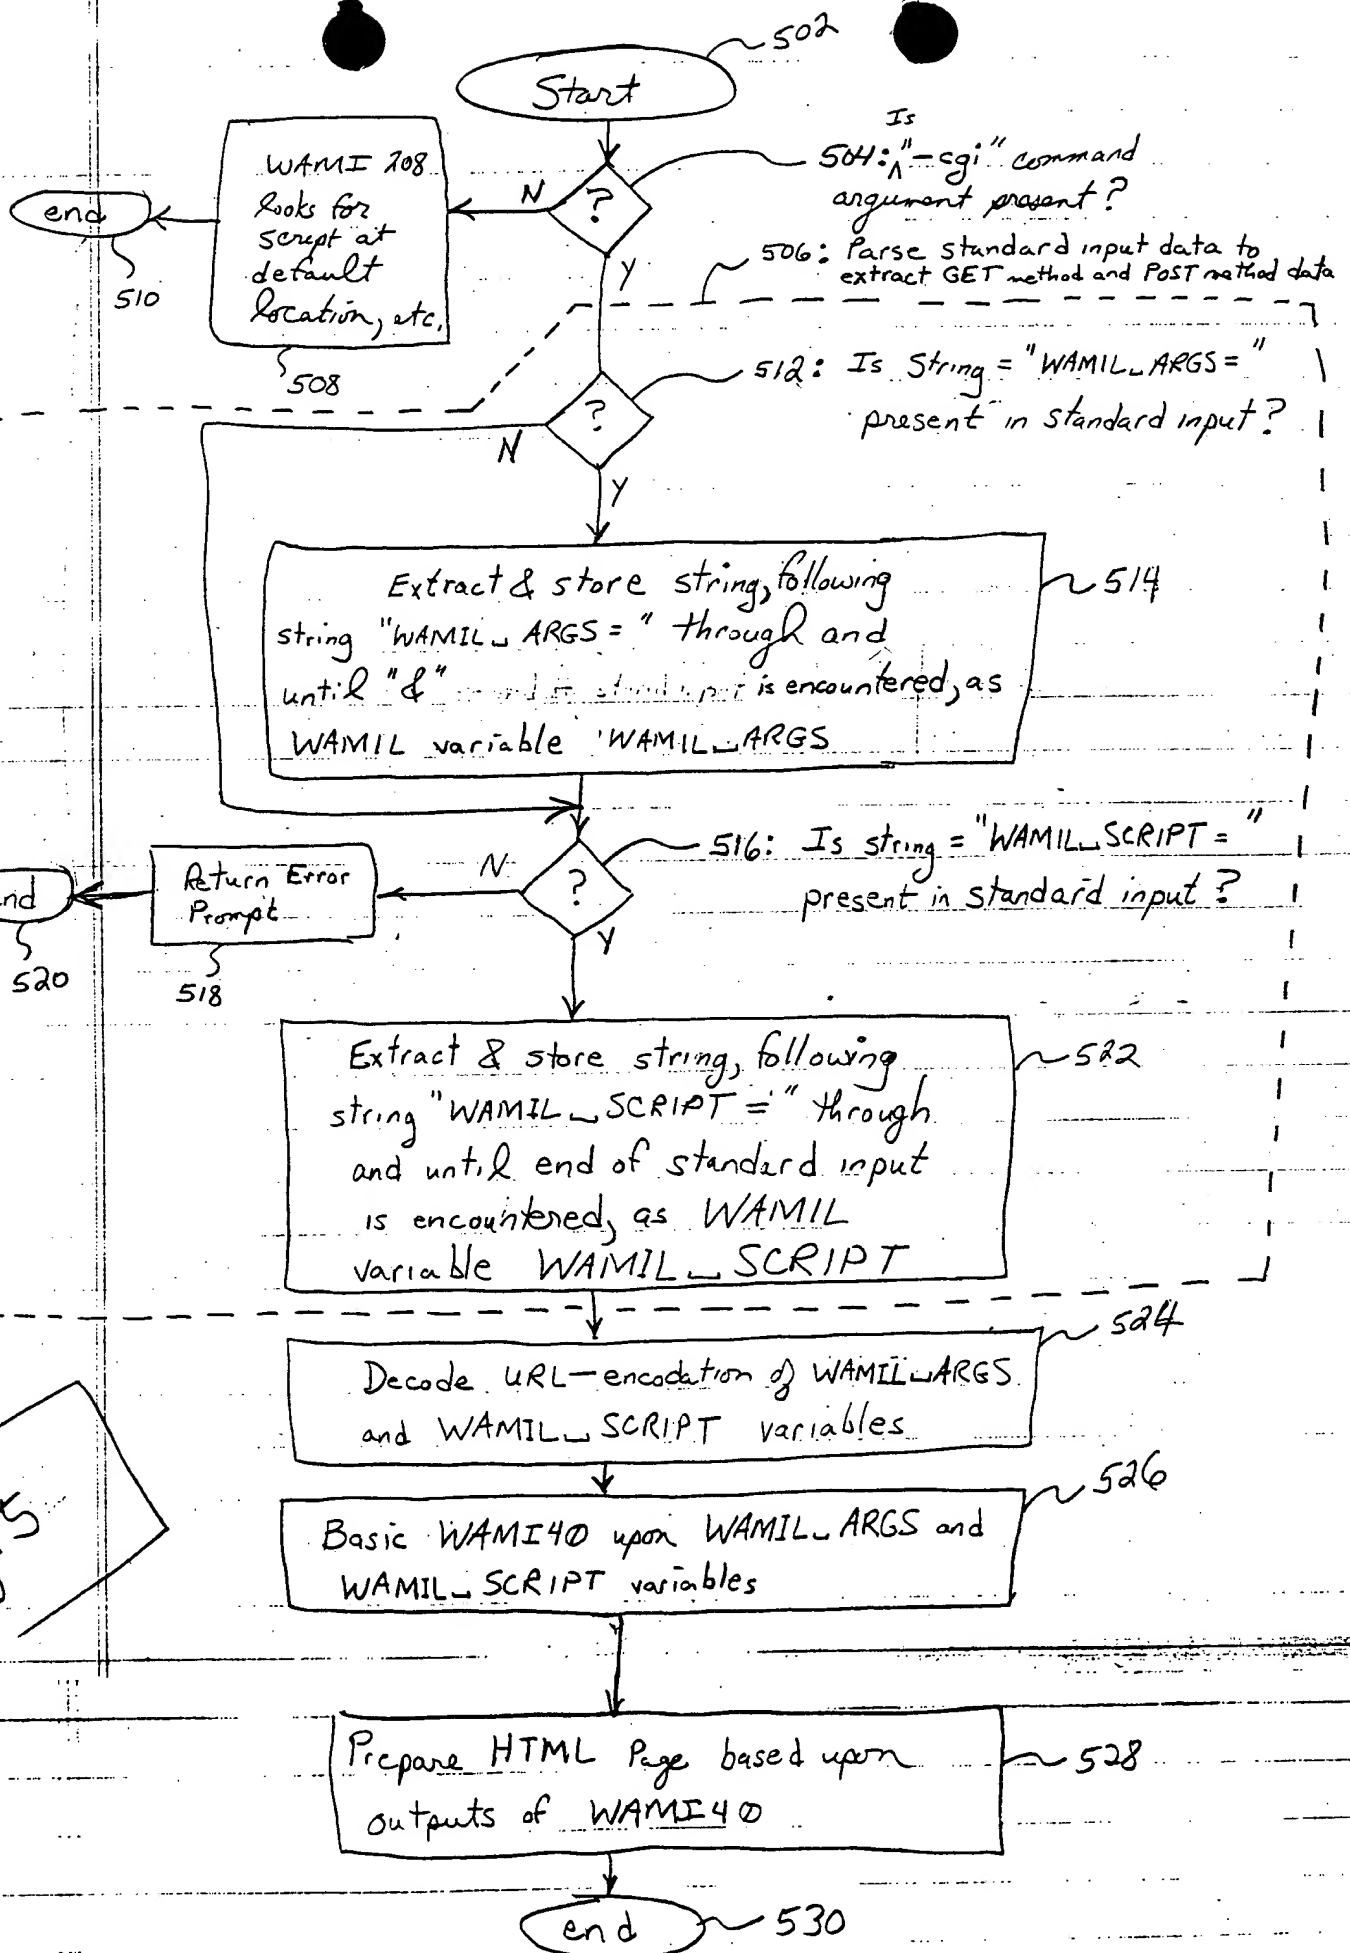 502
Start
Is
504: "-cgi" command
argument present?
?
N
Y
WAMI 208
looks for
script at
default
location, etc.
508
end
510
506: Parse standard input data to
extract GET method and POST method data
512: Is String = "WAMIL_ARGS="
present in standard input?
?
N
Y
Extract & store string, following
string "WAMIL_ARGS=" through and
until "&" is encountered, as
WAMIL variable WAMIL_ARGS
514
516: Is string = "WAMIL_SCRIPT="
present in standard input?
?
N
Y
Return Error
Prompt
518
nd
520
Extract & store string, following
string "WAMIL_SCRIPT=" through
and until end of standard input
is encountered, as WAMIL
variable WAMIL_SCRIPT
522
524
Decode URL-encodation of WAMIL_ARGS
and WAMIL_SCRIPT variables
526
Basic WAMI40 upon WAMIL_ARGS and
WAMIL_SCRIPT variables
5
Prepare HTML Page based upon
outputs of WAMI40
528
end
530